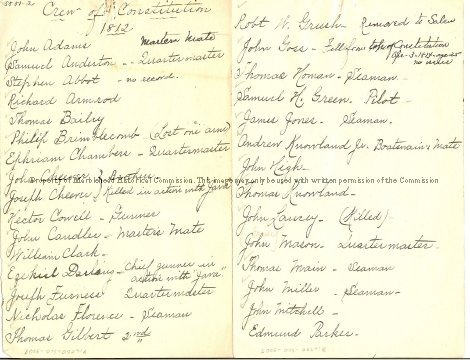 Crew of "Constitution
1812
John Adams Masters Mate
Samuel Anderton - Quartermaster
Stephen Abbot - no record.
Richard Armrod
Thomas Bailey
Philip Brimblecomb (Lost one arm)
Ephriam Chambers - Quartermaster
John Cheever } Brothers
Joseph Cheever } Killed in action with Java
Property of Marblehead Historical Commission. This image may only be used with written permission of the Commission
Hector Cowell - Gunner
John Caudler - Masters Mate
William Clark -
Ezekiel Darling - Chief gunner in
action with "Java"
Joseph Furness Quartermaster
Nicholas Florence - Seaman
Thomas Gilbert 2nd
Robt N. Grush Removed to Salem
John Goss - Fell from top of Constitution
no service
Thomas Homan - Seaman.
Samuel H. Green. Pilot -
James Jones - Seaman.
Andrew Knowland Jr. Boatswain's Mate
John High -
Thomas Knowland -
John (Killed)
John Mason - Quartermaster -
Thomas Main - Seaman
John Miller - Seaman -
John Mitchell -
Edmund Parker -